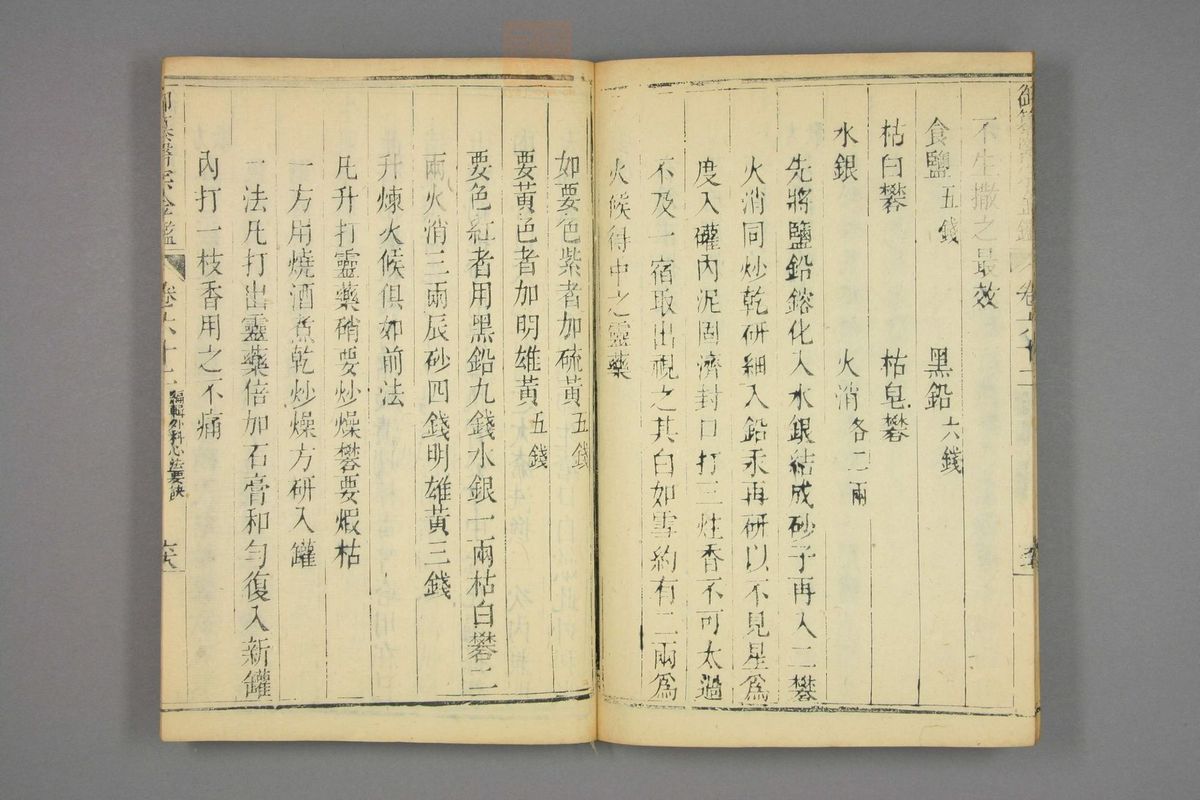 不生撒之最效
食鹽五錢　黑鉛六錢
枯白礬　枯皂礬
水銀　火消各二兩
先將鹽鉛鎔化入水銀結成砂子再入二礬
火消同炒乾研細入鉛汞再研以不見星為
度入罐內泥固濟封口打三炷香不可太過
不及一宿取出視之其白如雪約有二兩爲
火候得中之靈藥
如要色紫者加硫黃五錢
要黃色者加明雄黃五錢
要色紅者用黑鉛九錢水銀一兩枯白礬二
兩火消三兩辰砂四錢明雄黃三錢
升煉火候俱如前法
凡升打靈藥硝要炒燥礬要煆枯
一方用燒酒煮乾炒燥方研入罐
一法凡打出靈藥倍加石膏和勻復入新罐
內打一枝香用之不痛
卷六十二
編輯外科心法要訣